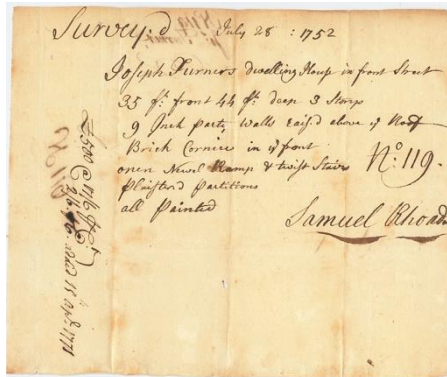 Survey'd July 28 : 1752
Joseph Turners dwelling House in front Street
35 f.t front 44 f.t deep 3 Storys
9 Inch party Walls Rais'd above y.e Roof
Brick Cornice in y.e front
open Newel Ramp & twist Stairs
Plaister'd Partitions
all Painted
N.o 119.
Samuel Rhoads
£500 @